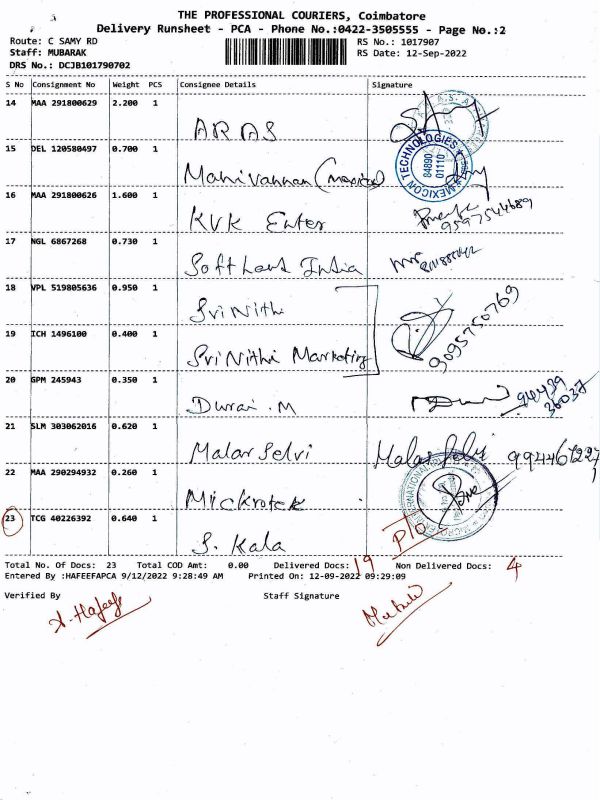 THE PROFESSIONAL COURIERS, Coimbatore
Delivery Runsheet - PCA - Phone No.:0422-3505555 - Page No.:2
Route: C SAMY RD RS No.: 1017907
Staff: MUBARAK RS Date: 12-Sep-2022
DRS No.: DCJB101790702
S No Consignment No Weight PCS Consignee Details Signature
14 MAA 291800629 2.200 1
ARAS
15 DEL 120580497 0.700 1
TECHNOLOGIES * MEXICON
84890
01110
Manivannan (mexico)
16 MAA 291800626 1.600 1
KVK Enter
9597544689
17 NGL 6867268 0.730 1
Softhard India
18 VPL 519805636 0.950 1
Sri Nithi
19 ICH 1496100 0.400 1
9095750769
Sri Nithi Marketing
20 GPM 245943 0.350 1
Durai .M
94439
36037
21 SLM 303062016 0.620 1
Malar Selvi Malar Selvi 994467227
1
22 MAA 290294932 0.260 1
Mickrotek
23 TCG 40226392 0.640 1
S. Kala P/O
Total No. Of Docs: 23 Total COD Amt: 0.00 Delivered Docs: 19 Non Delivered Docs: 4
Entered By :HAFEEFAPCA 9/12/2022 9:28:49 AM Printed On: 12-09-2022 09:29:09
Verified By Staff Signature
A. Hafeefa